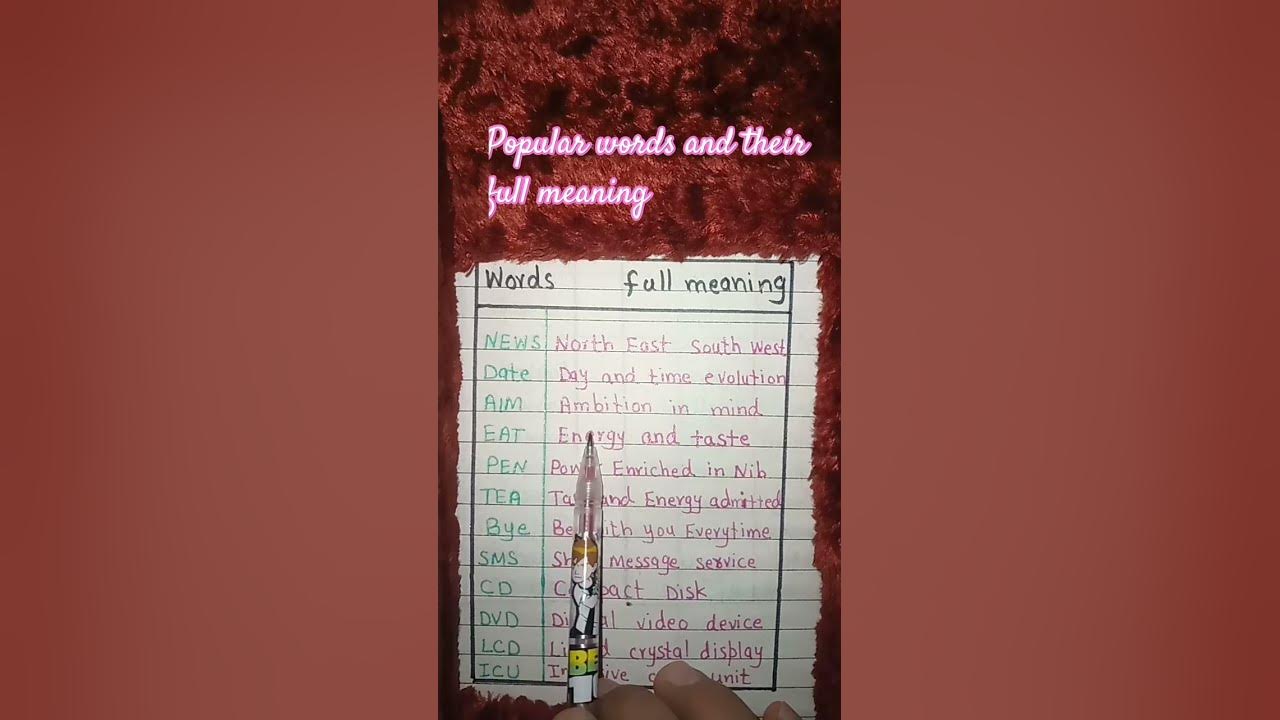 Popular words and their
full meaning
Words full meaning
NEWS North East South West
Date Day and time evolution
AIM Ambition in mind
EAT Energy and taste
PEN Enriched in Nib
TEA and Energy admitted
Bye you Everytime
SMS Message service
CD Disk
DVD video device
LCD crystal display
ICU unit
BE